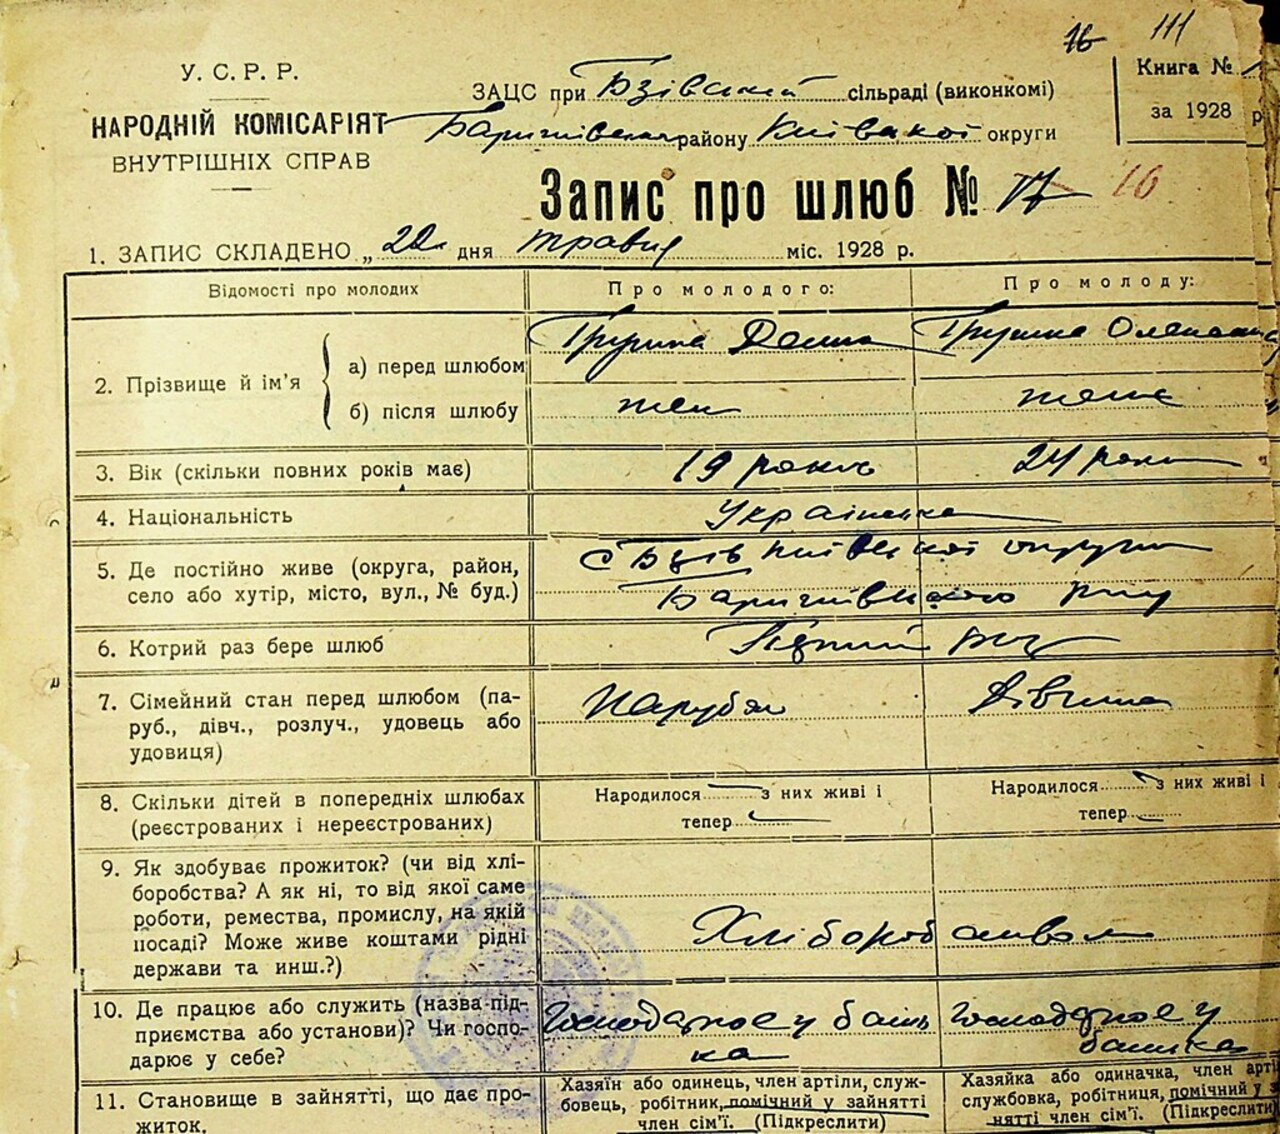 16 111
У. С. Р. Р.
НАРОДНІЙ КОМІСАРІЯТ
ВНУТРІШНІХ СПРАВ
ЗАЦС при Бзівський сільраді (виконкомі)
Баришівськ району Київської округи
Книга №
за 1928 р
Запис про шлюб № 17 16
1. ЗАПИС СКЛАДЕНО „22 дня травня міс. 1928 р.
Відомості про молодих
Про молодого:
Про молоду:
2. Прізвище й ім’я
а) перед шлюбом
б) після шлюбу
3. Вік (скільки повних років має)
19 років
24 роки
4. Національність
Українська
5. Де постійно живе (округа, район,
село або хутір, місто, вул., № буд.)
с Бзів Київської округи
Баришівського р-ну
6. Котрий раз бере шлюб
раз
7. Сімейний стан перед шлюбом (па-
руб., дівч., розлуч., удовець або
удовиця)
Парубок
Дівчина
8. Скільки дітей в попередніх шлюбах
(реєстрованих і нереєстрованих)
Народилося з них живі і
тепер
Народилося з них живі і
тепер
9. Як здобуває прожиток? (чи від хлі-
боробства? А як ні, то від якої саме
роботи, ремества, промислу, на якій
посаді? Може живе коштами рідні
держави та инш.?)
Хліборобством
10. Де працює або служить (назва під-
приємства або установи)? Чи госпо-
дарює у себе?
Господарює у бать
ка
Господарює у
батька
11. Становище в зайнятті, що дає про-
житок.
Хазяїн або одинець, член артіли, служ-
бовець, робітник, помічний у зайнятті
член сім’ї. (Підкреслити)
Хазяйка або одиначка, член арті
службовка, робітниця, помічний у з
нятті член сім’ї. (Підкреслити